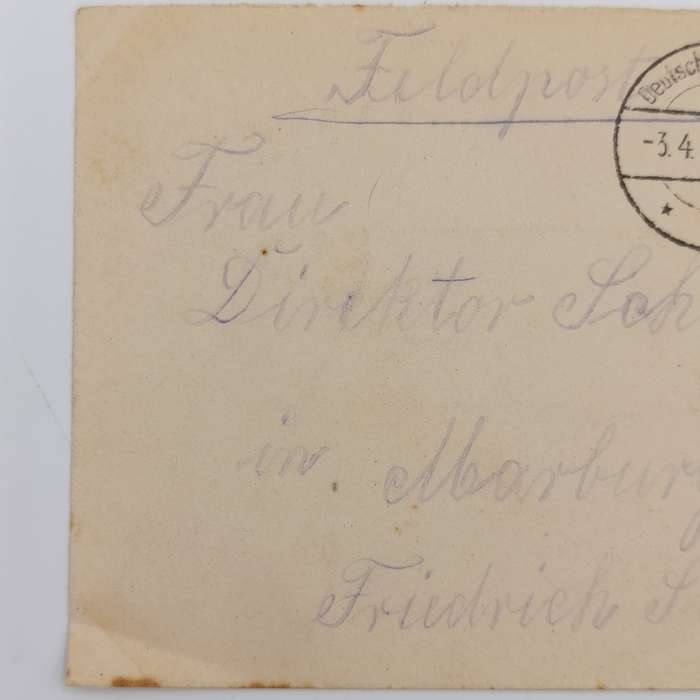 Feldpost
Deutsch
-3.4.
Frau
Direktor Sch
in Marburg
Friedrich S